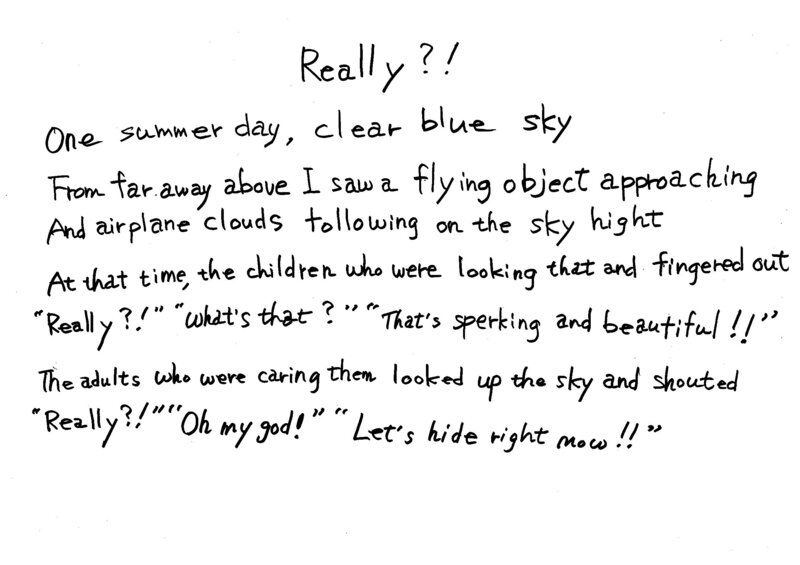 Really?!
One summer day, clear blue sky
From far away above I saw a flying object approaching
And airplane clouds following on the sky hight
At that time, the children who were looking that and fingered out
"Really?!" "What's that?" "That's sperking and beautiful!!"
The adults who were caring them looked up the sky and shouted
"Really?!" "Oh my god!" "Let's hide right now!!"